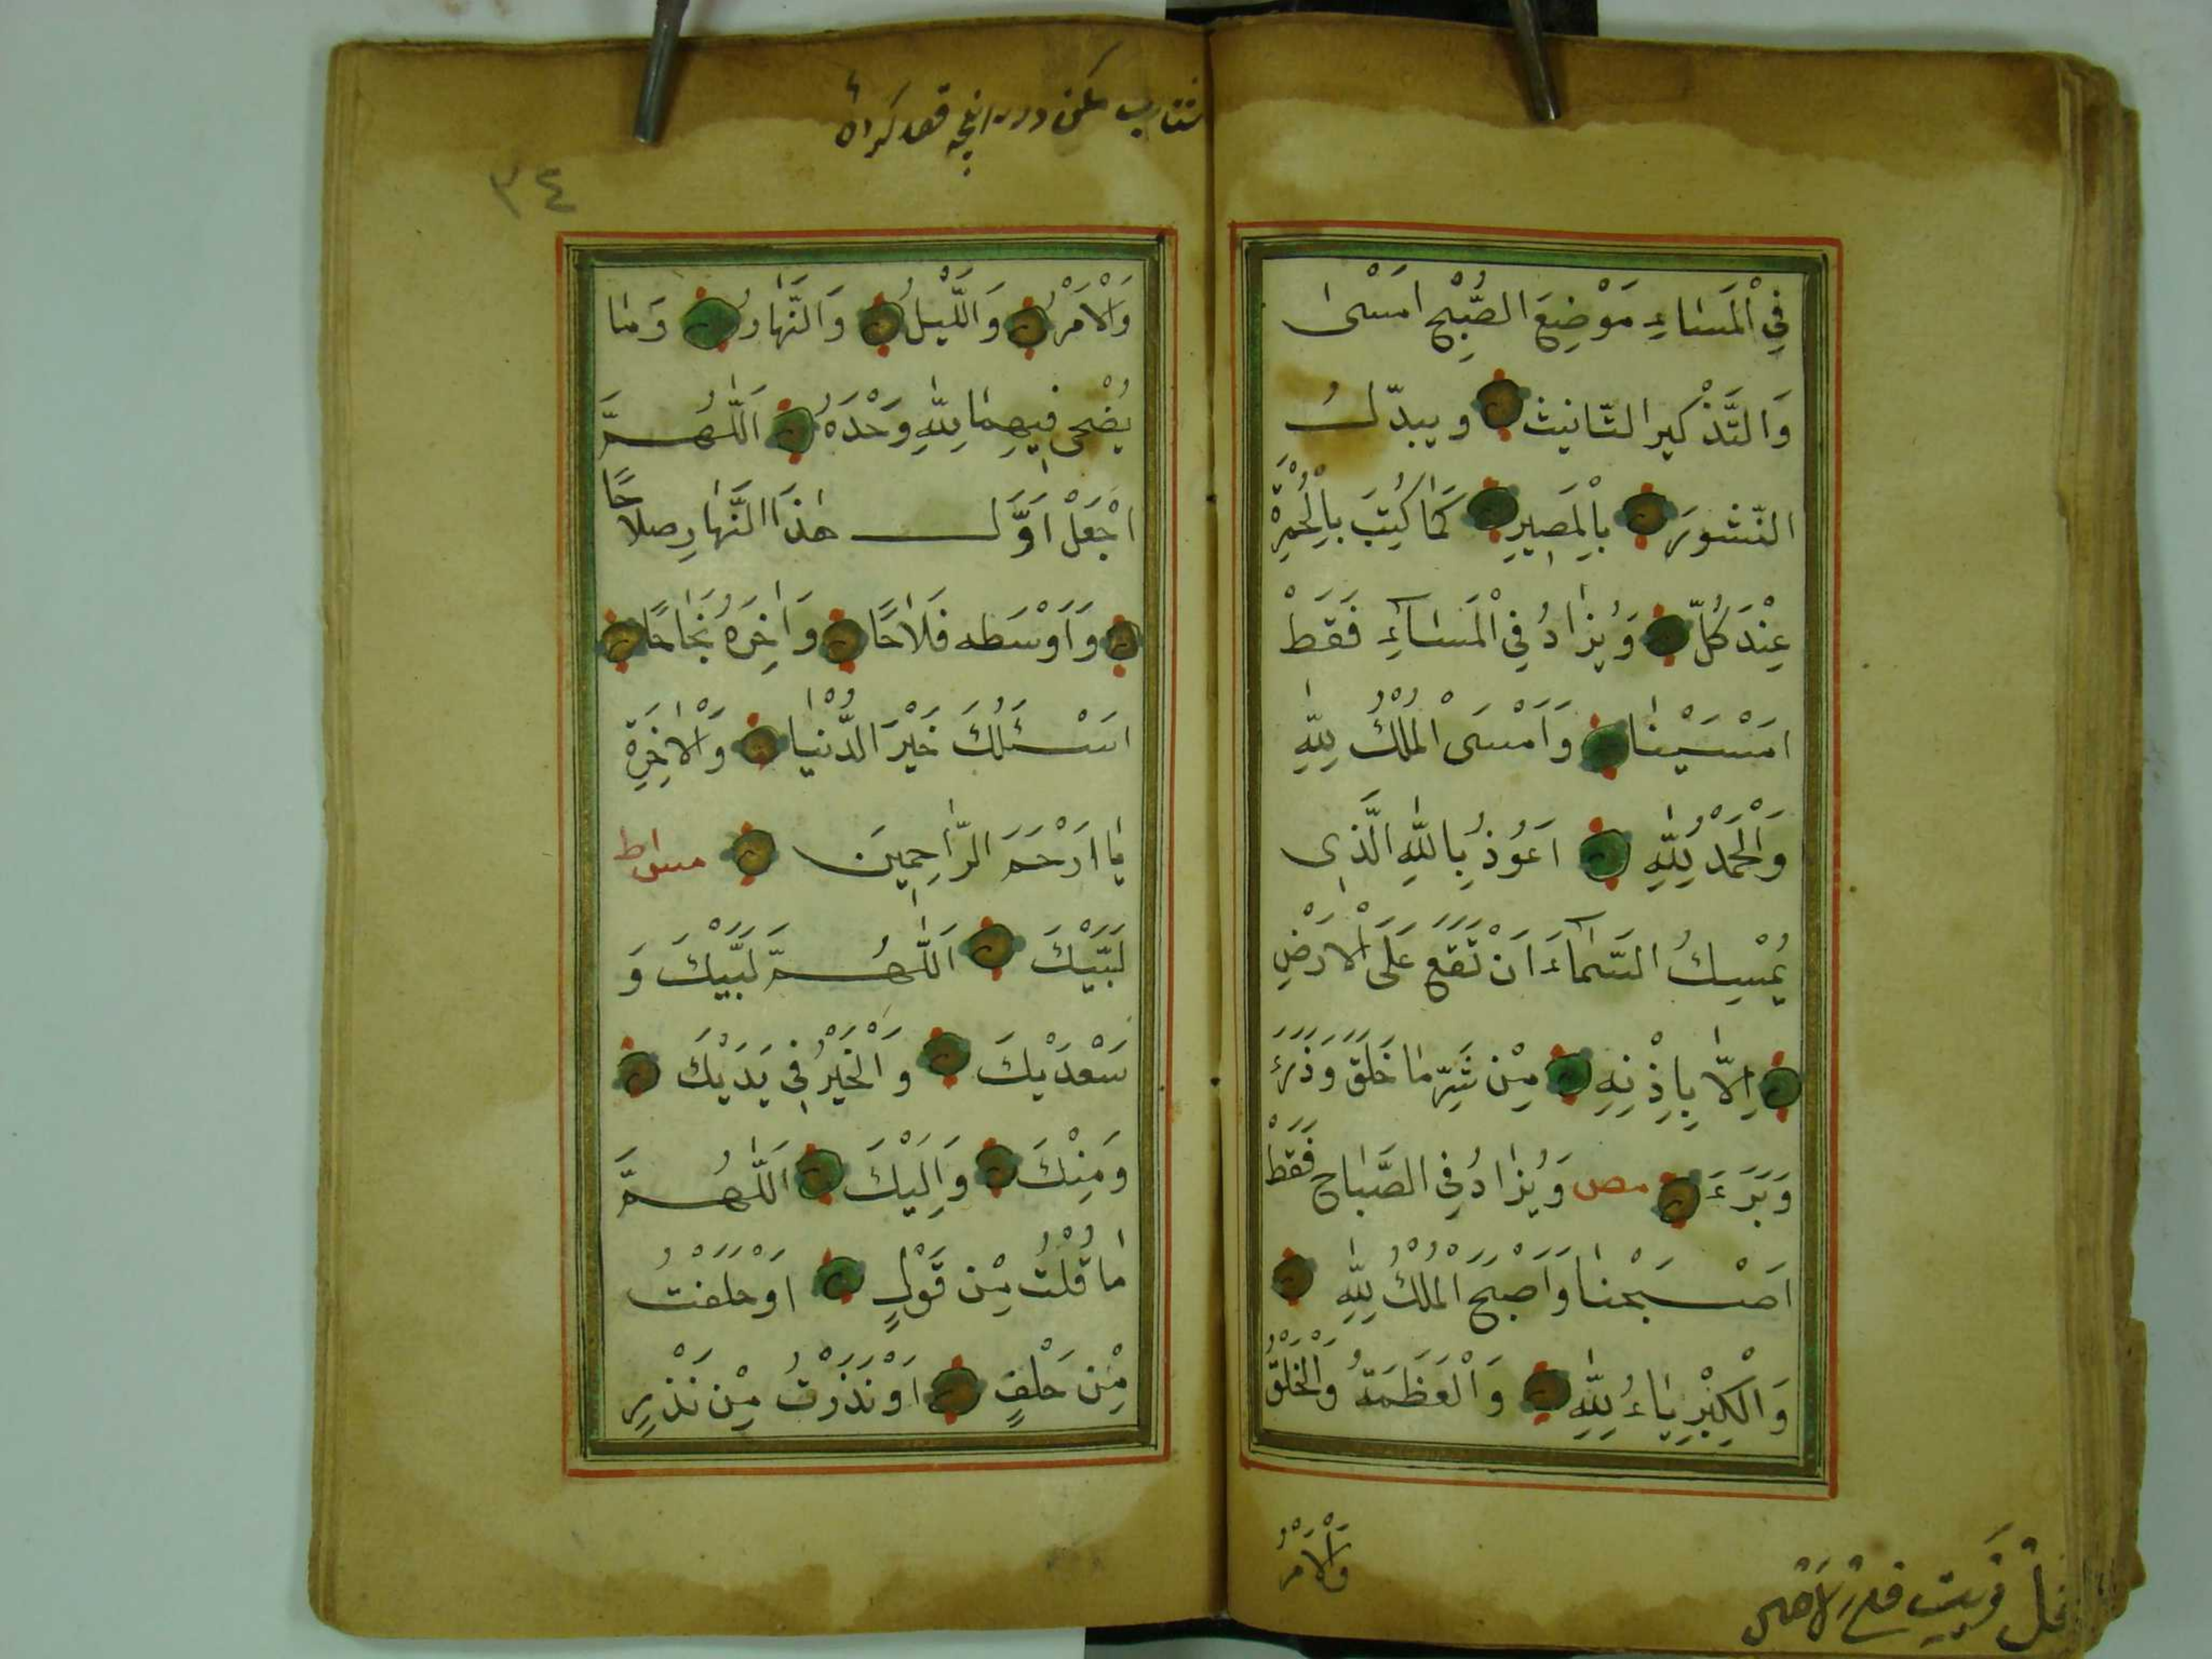 فِي الْمَسٰاءِ مَوْضِعَ الصُّبْحِ امَسْىٰ
وَالتَّذْكيرِ التّانيث وَيبدّلُ
النّشورَ بِالْمَصٖيرِ كَمٰا كُتِبَ بِالْحُمْرَةِ
عِنْدَ كُلّ وَيُزٰادُ فِي الْمَسٰآءِ فَقَطْ
امَسْيَنٰا وَاَمْسَى الْمُلْكُ لِلّٰهِ
وَالْحَمْدُ لِلّٰهِ اَعُوذُ بِاللّٰهِ الَّذٖى
يُمْسِكُ السَّمٰآءَ اَنْ تَقَعَ عَلَى الْاَرْضِ
اِلّٰا بِاِذْنِهِ مِنْ شَرِّ مٰا خَلَقَ وَذَرَءَ
وَبَرَءَ مص وَيُزٰادُ فِي الصَّبٰاحِ فَقَطْ
اَصْبَحْنٰا وَاَصْبَحَ الْمُلْكُ لِلّٰهِ
وَالْكِبْرِيٰاءُ لِلّٰهِ وَالْعَظَمَةُ وَالْخَلْقُ
وَالْاَمْرُ
٣٤
وَالْاَمْرُ وَاللَّيْلُ وَالنَّهٰارُ وَمٰا
يُضْحٰى فٖيهِمٰا لِلّٰهِ وَحْدَهُ اَللّٰهُمَّ
اجْعَلْ اَوَّلَ هٰذَا النَّهٰارِ صلاٰحًا
وَاَوْسَطه فَلاٰحًا وَاٰخِرَهُ نَجٰاحًا
اسَْئَلُكَ خَيْرَ الدُّنْيٰا وَالْاٰخِرَةِ
يٰا اَرْحَمَ الرّٰاحِمٖينَ مساط
لَبَّيْكَ اَللّٰهُمَّ لَبَّيْكَ وَ
سَعْدَيْكَ وَالْخَيْرُ فٖي يَدَيْكَ
وَمِنْكَ وَاِلَيْكَ اَللّٰهُمَّ
مٰا قُلْتُ مِنْ قَوْلٍ اَوْ حَلَفْتُ
مِنْ حَلْفٍ اَوْ نَذَرْتُ مِنْ نَذْرٍ